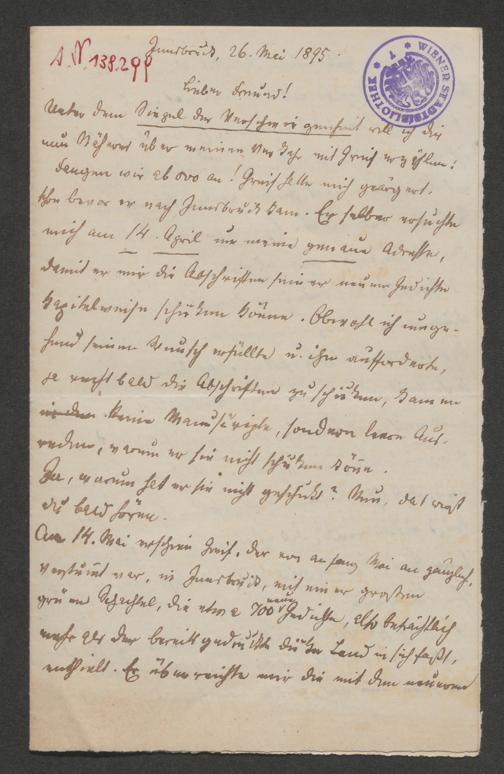 A.N. 138.299
WIENER STADTBIBLIOTHEK
Innsbruck, 26. Mai 1895.
Lieber Freund!
Unter dem Siegel der Verschwiegenheit will ich dir
nun Näheres über meinen Verkehr mit Greif erzählen:
Fangen wir ab ovo an! Greif hatte mich geärgert,
schon bevor er nach Innsbruck kam. Er selber ersuchte
mich am 14. April um meine genaue Adresse,
damit er mir die Abschriften seiner neuen Gedichte
kapitelweise schicken könne. Obwohl ich umge-
hend seinen Wunsch erfüllte u. ihn aufforderte,
ja recht bald die Abschriften zu schicken, kamen
in den keine Manuscripte, sondern leere Aus-
reden, warum er sie nicht schicken könne.
Ja, warum hat er sie nicht geschickt? Nun, das wirst
du bald hören.
Am 14. Mai erschien Greif, der von anfang Mai an gänzlich
verstummt war, in Innsbruck, mit einer großen
grünen Schachtel, die etwa 700 neue Gedichte, also beträchtlich
mehr als der bereits gedruckte dicke Band in sich faßt,
enthielt. Er überreichte mir die mit den neueren